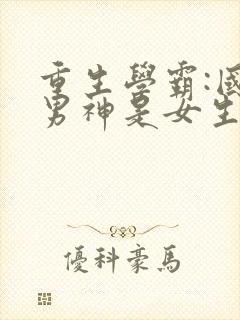 重生學霸:國
男神是女生
優科豪馬